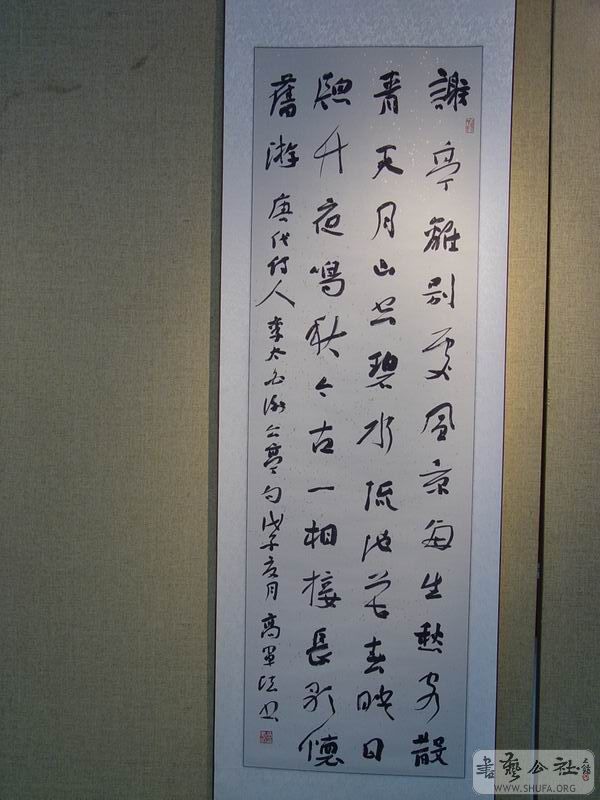 謝亭離別處風景每生愁客散
青天月山空碧水流池花春映日
牕竹夜鳴秋今古一相接長歌懷
舊游 唐代詩人李太白謝公亭句 戊子夏月 高軍法书
書藝公社
WWW.SHUFA.ORG